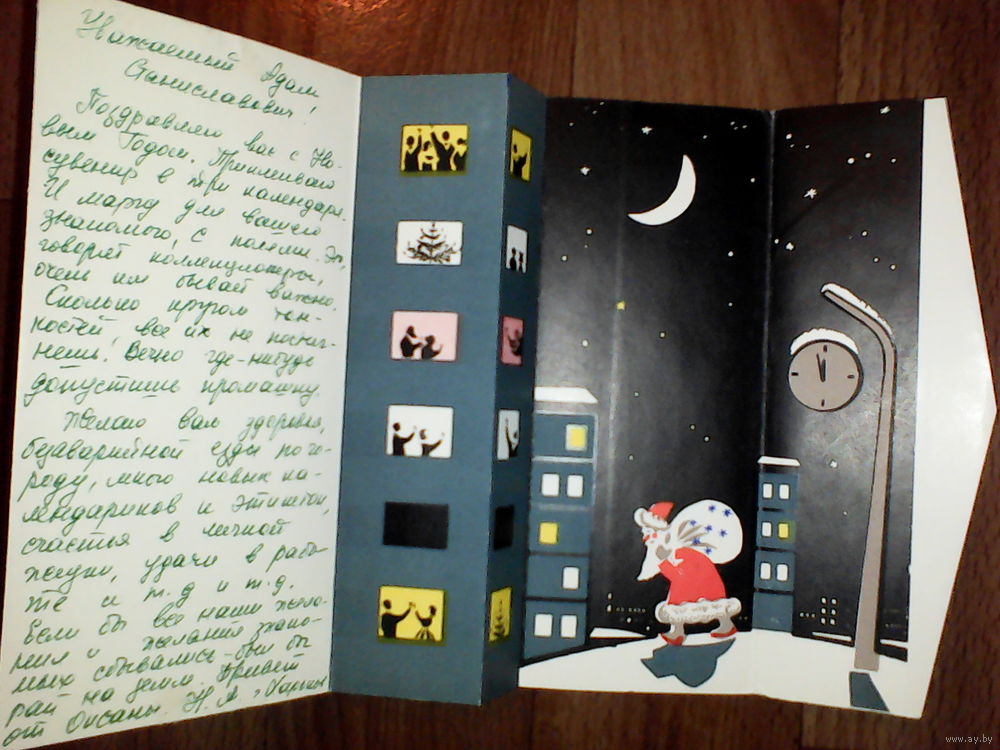 Уважаемый Адам
Станиславович!
Поздравляю вас с Но-
вым Годом. Приклеиваю
сувенир в три календаря.
И марку для вашего
знакомого, с полями. Это,
говорят коллекционеры,
очень им бывает важно.
Сколько кругом тон-
костей все их не постиг-
нешь! Вечно где-нибудь
допустишь промашку.
Желаю вам здоровья,
безаварийной езды по го-
роду, много новых ка-
лендариков и этикеток,
счастья в личной
жизни, удачи в рабо-
те и т.д и т.д.
Если бы все наши жела-
ния и желания знако-
мых сбывались - был бы
рай на земле. Привет
от Оксаны. Н. А.
www.ay.by